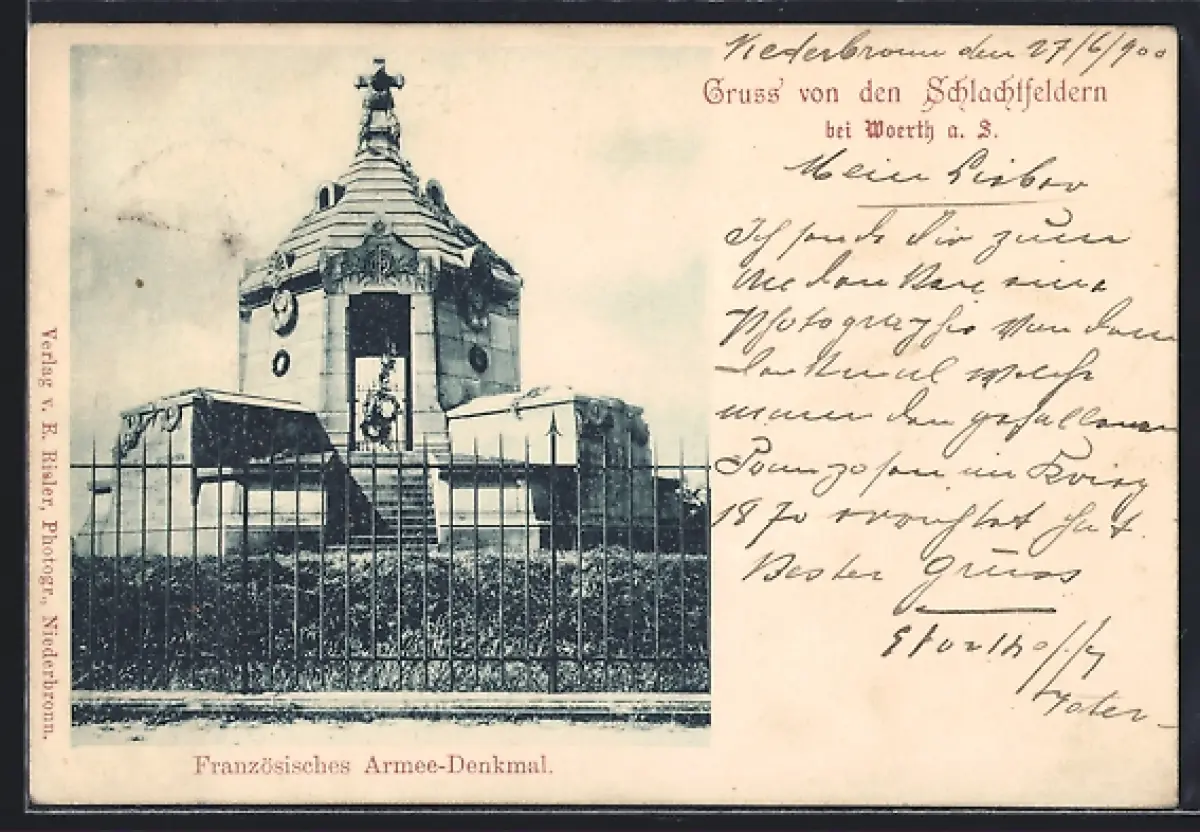 Niederbronn den 27/6/900
Gruss von den Schlachtfeldern
bei Woerth a. S.
Mein Lieber
Ich sende Dir zum
Andenken eine
Photographie von dem
Denkmal welche
man den gefallenen
Franzosen im Krieg
1870 errichtet hat.
Bester Gruss
Verlag v. E. Risler, Photogr., Niederbronn.
Französisches Armee-Denkmal.